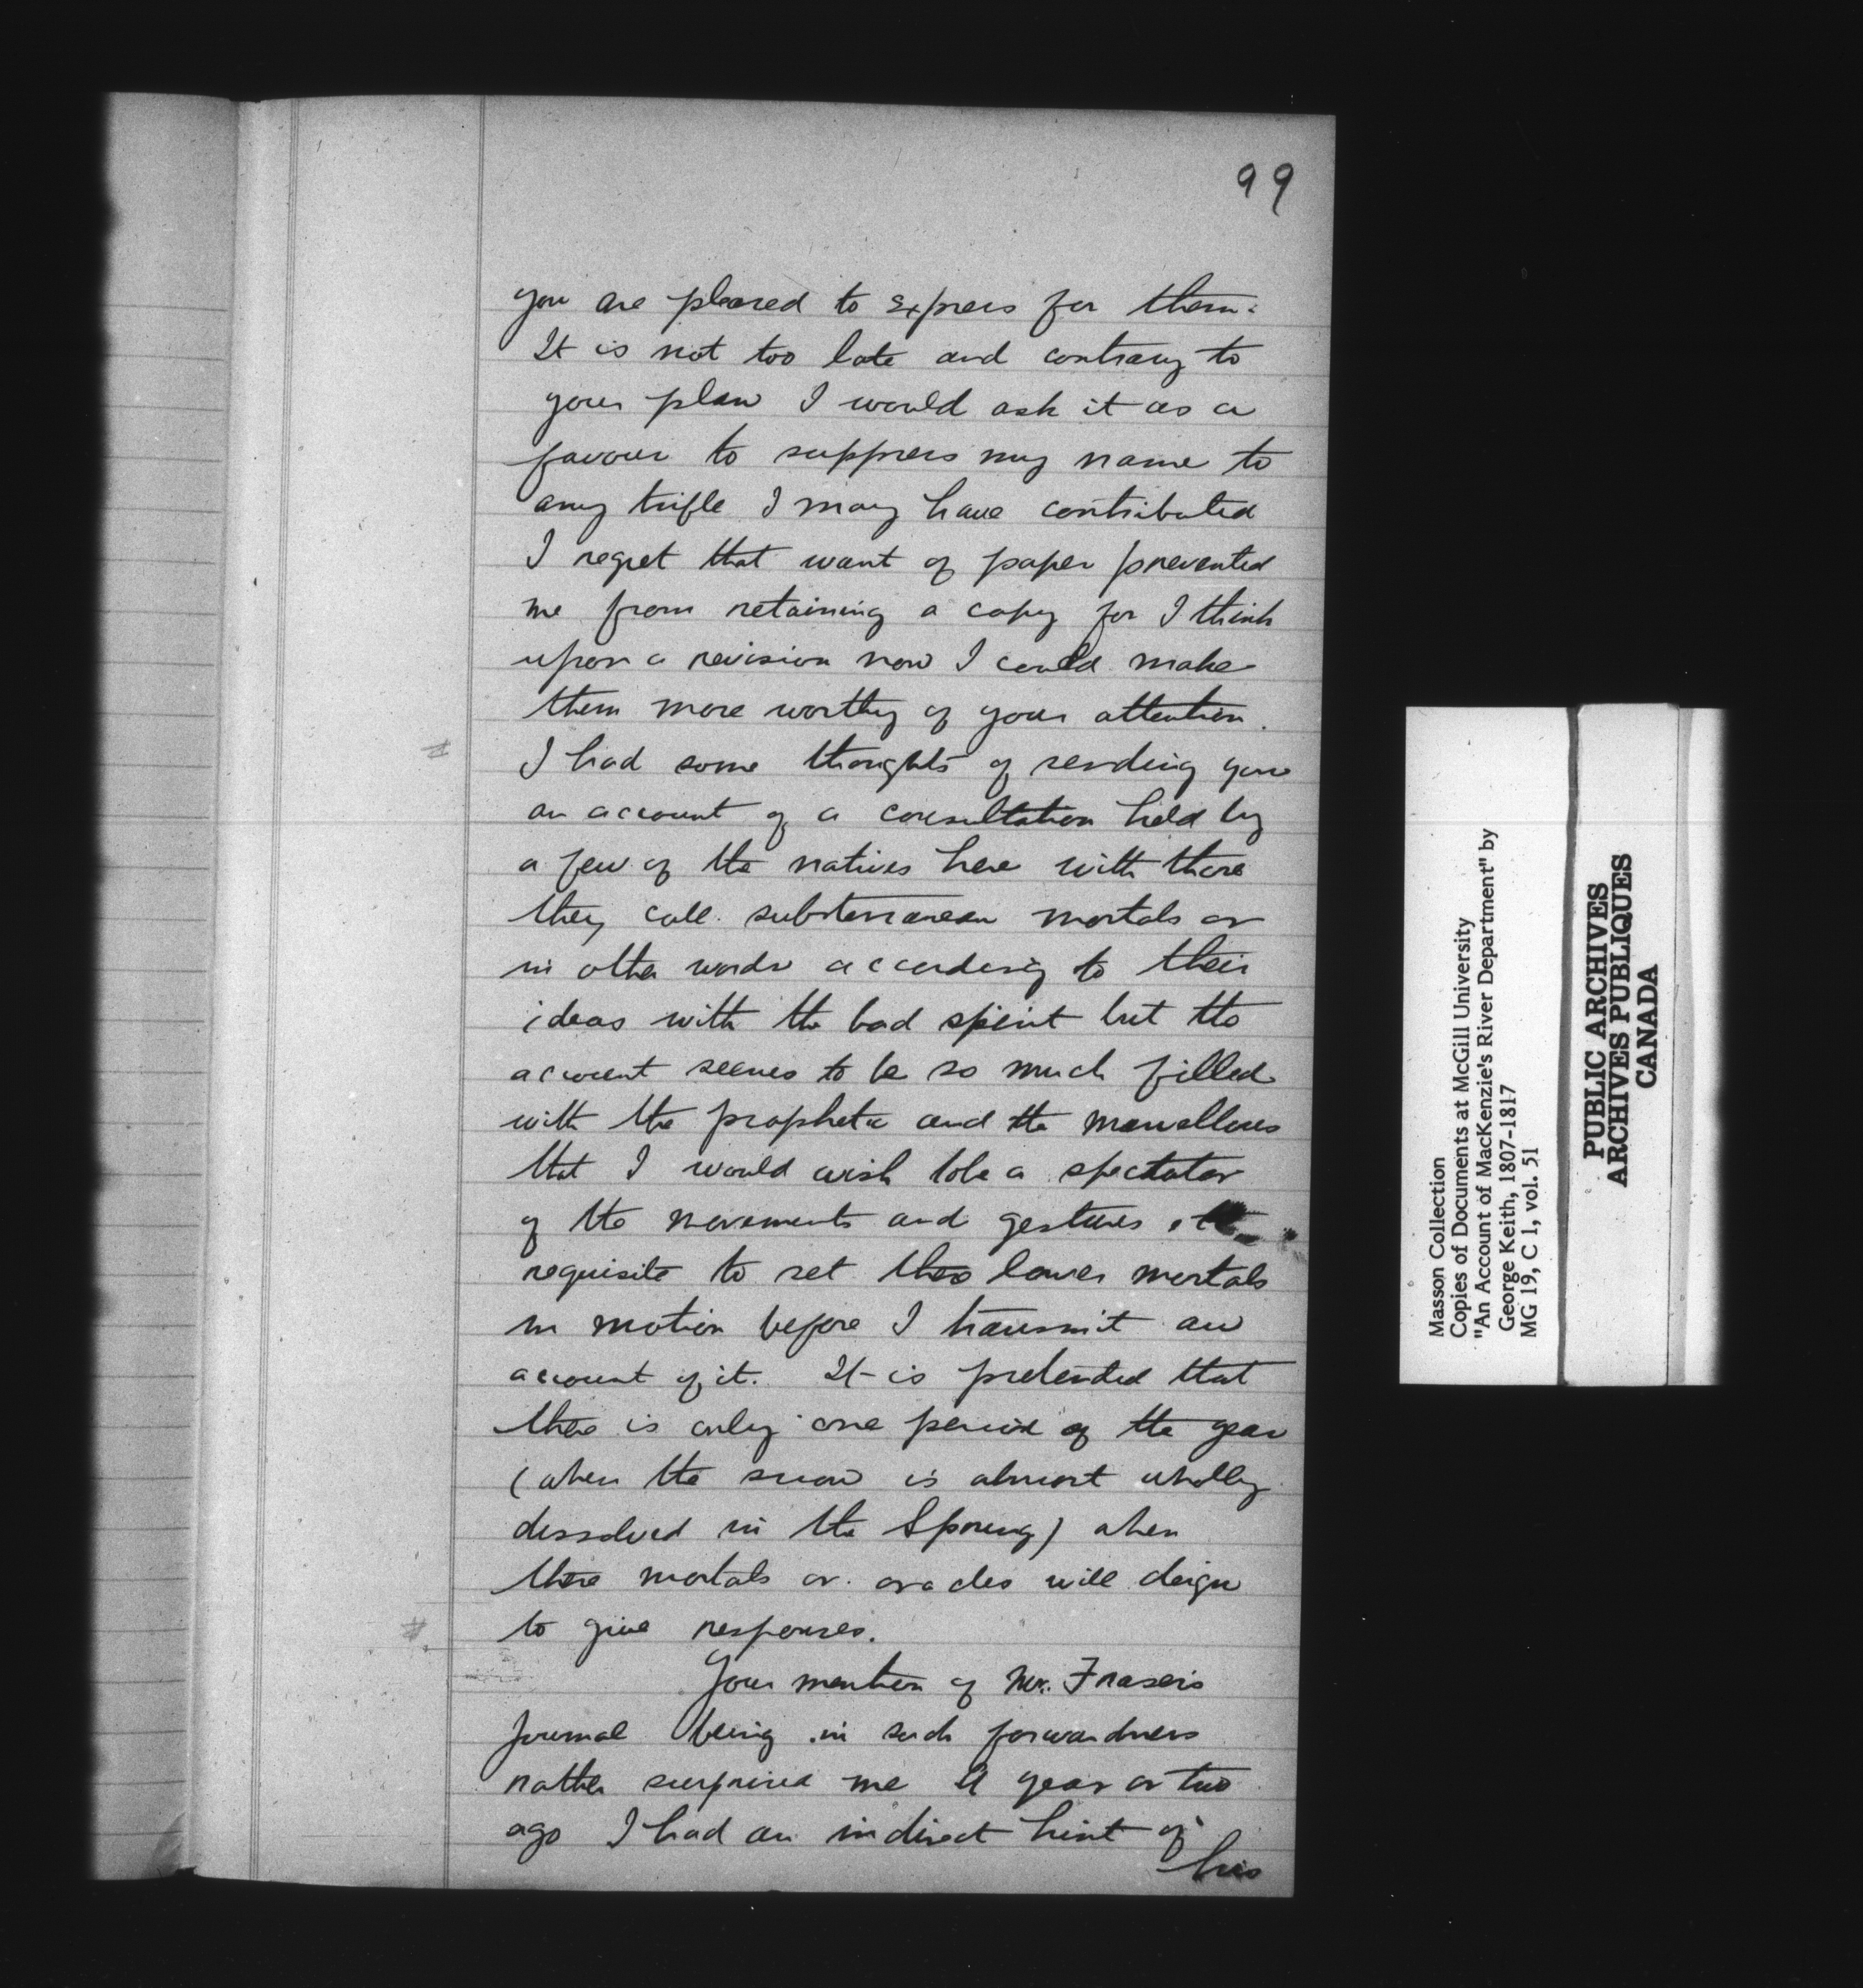 99
you are pleased to express for them:
It is not too late and contrary to
your plan I would ask it as a
favour to suppress my name to
any trifle I may have contributed
I regret that want of paper prevented
me from retaining a copy for I think
upon a revision now I could make
them more worthy of your attention.
I had some thoughts of sending you
an account of a consultation held by
a few of the natives here with those
they call subterranean mortals or
in other words according to their
ideas with the bad spirit but the
account seems to be so much filled
with the prophetic and the marvellous
that I would wish to be a spectator
of the movements and gestures
requisite to set these lower mortals
in motion before I transmit an
account of it. It is pretended that
there is only one period of the year
(when the snow is almost wholly
dissolved in the Spring) when
these mortals or oracles will deign
to give responses.
Your mention of Mr. Fraser's
Journal being in such forwardness
rather surprised me A year or two
ago I had an indirect hint of
his
Masson Collection
Copies of Documents at McGill University
"An Account of MacKenzie's River Department" by
George Keith, 1807-1817
MG 19, C 1, vol. 51
PUBLIC ARCHIVES
ARCHIVES PUBLIQUES
CANADA